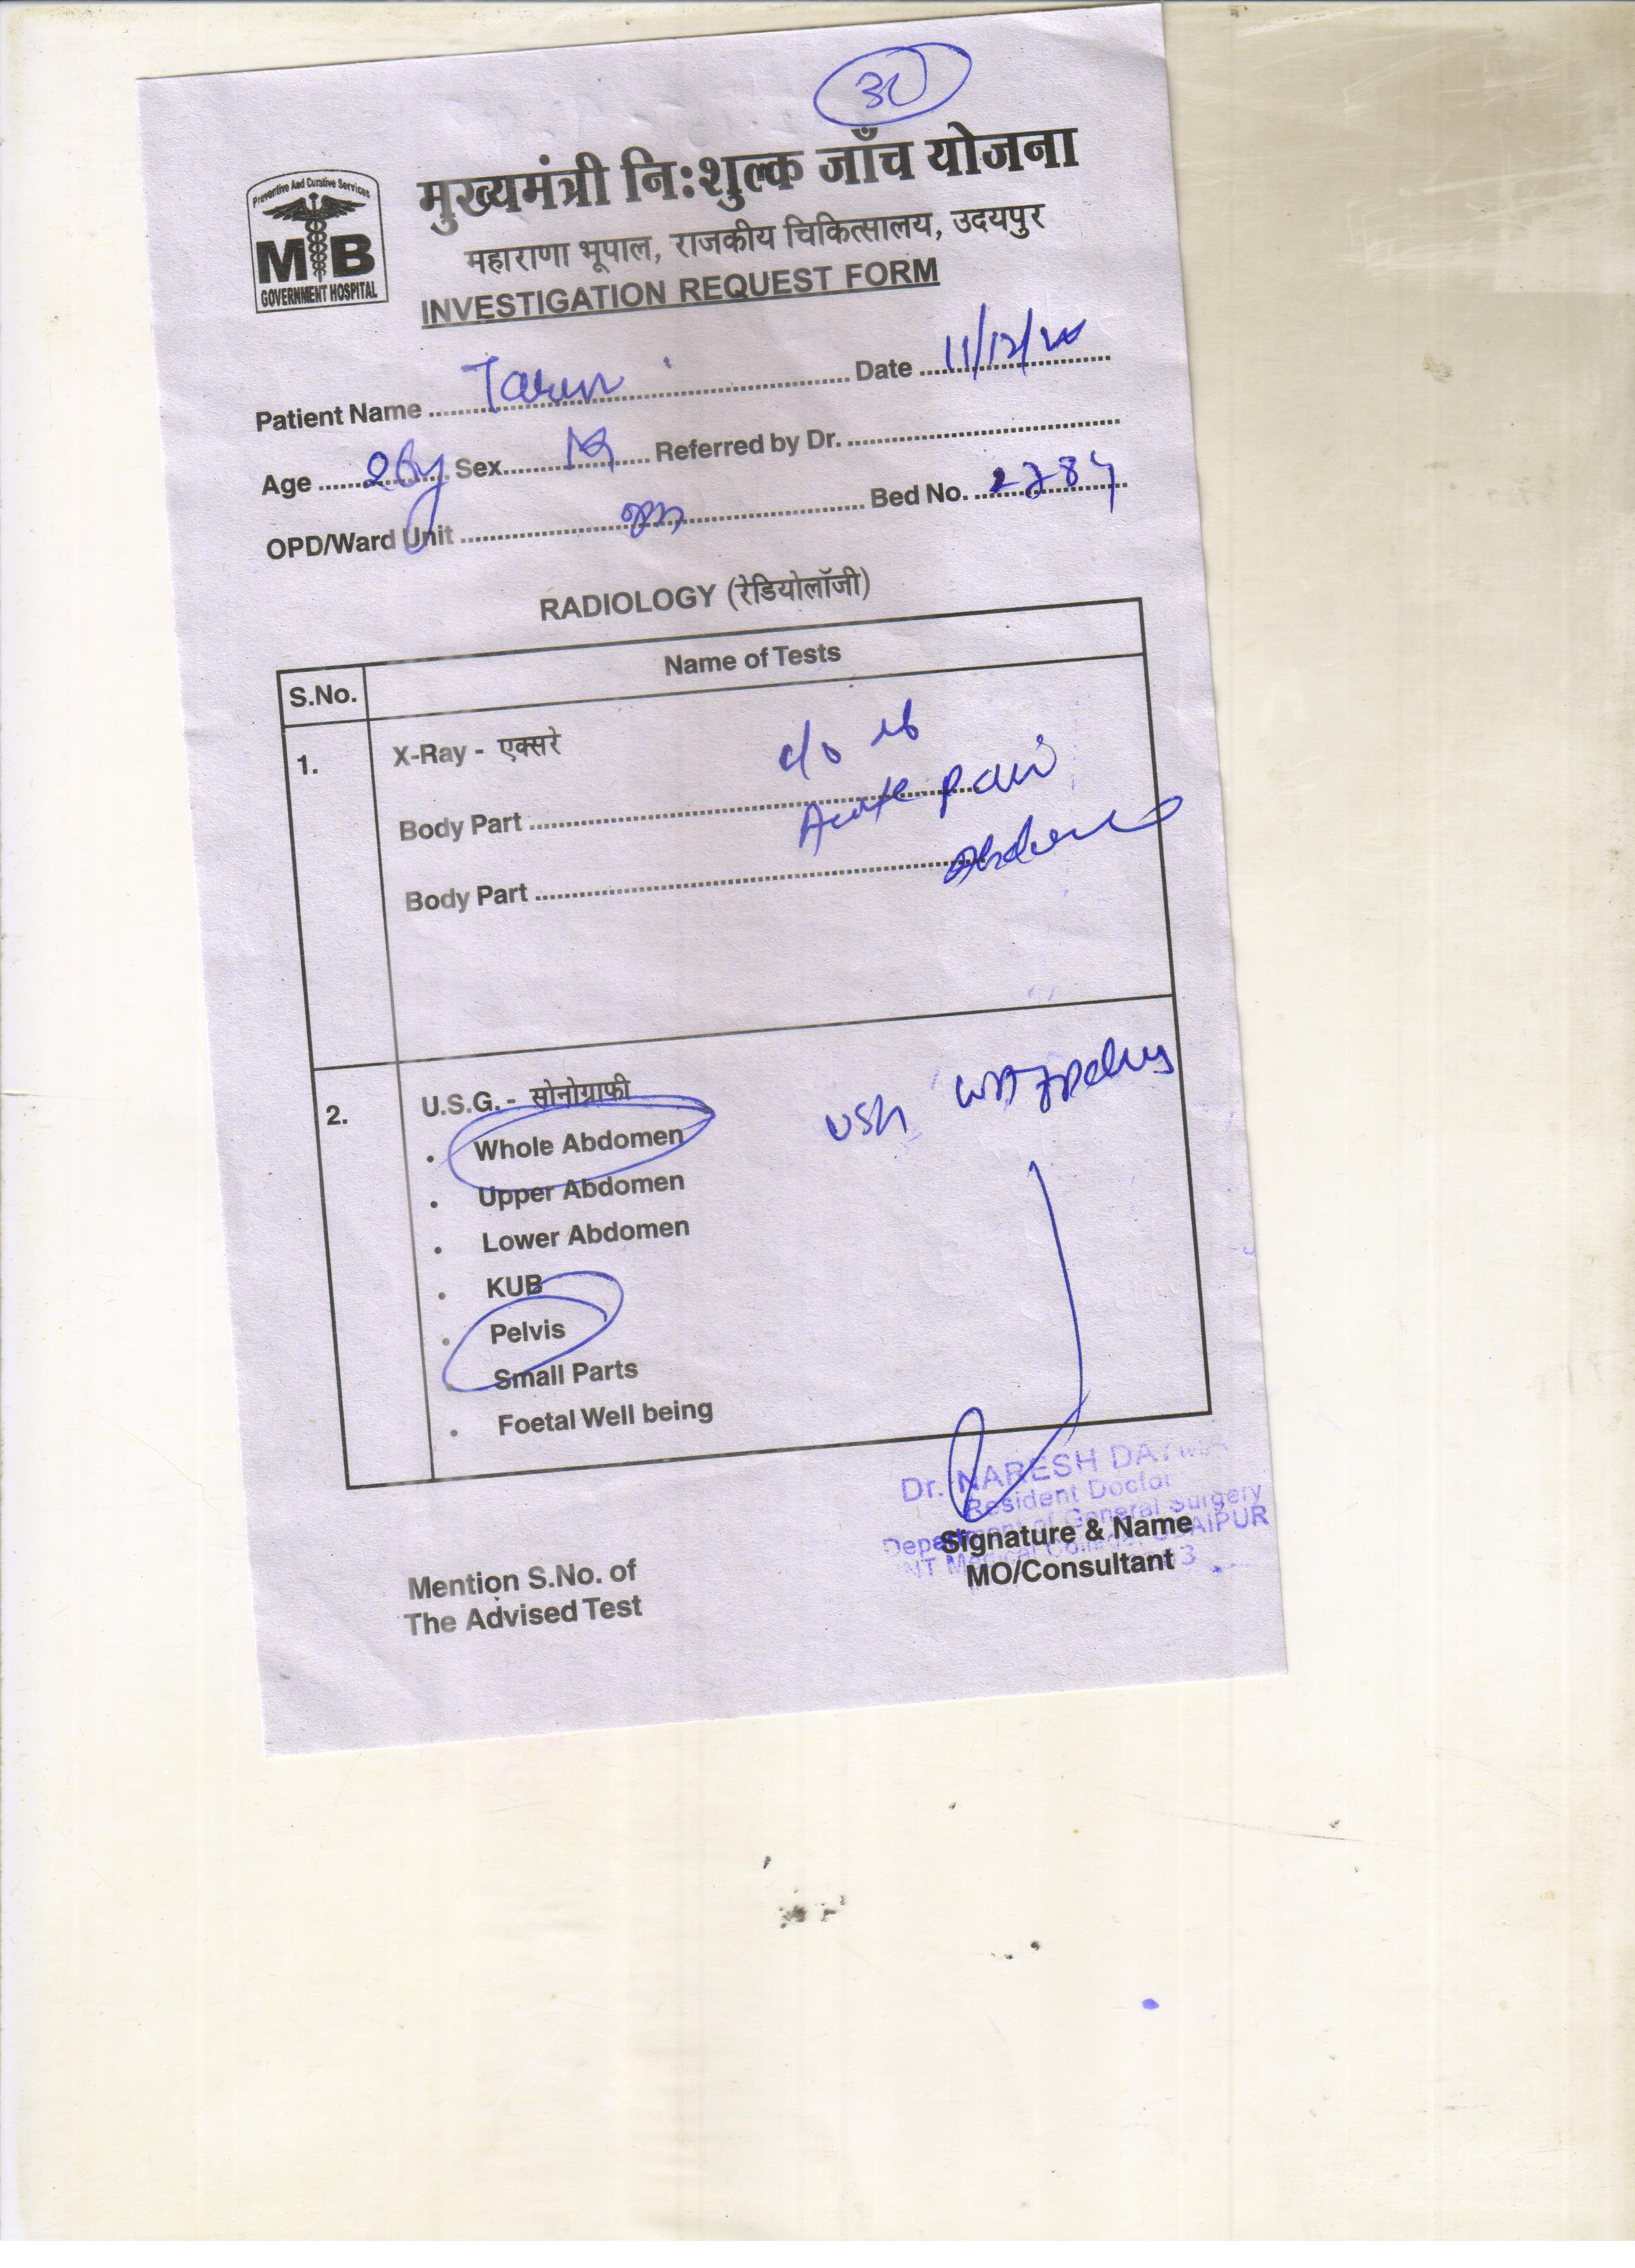 30
Preventive And Curative Services
MB
GOVERNMENT HOSPITAL
मुख्यमंत्री नि:शुल्क जाँच योजना
महाराणा भूपाल, राजकीय चिकित्सालय, उदयपुर
INVESTIGATION REQUEST FORM
Patient Name Tarun Date 11/12/20
Age 26y Sex M Referred by Dr.
OPD/Ward Unit Bed No. 2784
RADIOLOGY (रेडियोलॉजी)
S.No. Name of Tests
1. X-Ray - एक्सरे c/o
Body Part Acute pain
Body Part Abdomen
2. U.S.G. - सोनोग्राफी
USG WA + pelvis
• Whole Abdomen
• Upper Abdomen
• Lower Abdomen
• KUB
• Pelvis
Small Parts
• Foetal Well being
Dr. NARESH DAYMA
Resident Doctor
Department of General Surgery
Signature & Name
RNT Medical College UDAIPUR
MO/Consultant
Mention S.No. of
The Advised Test